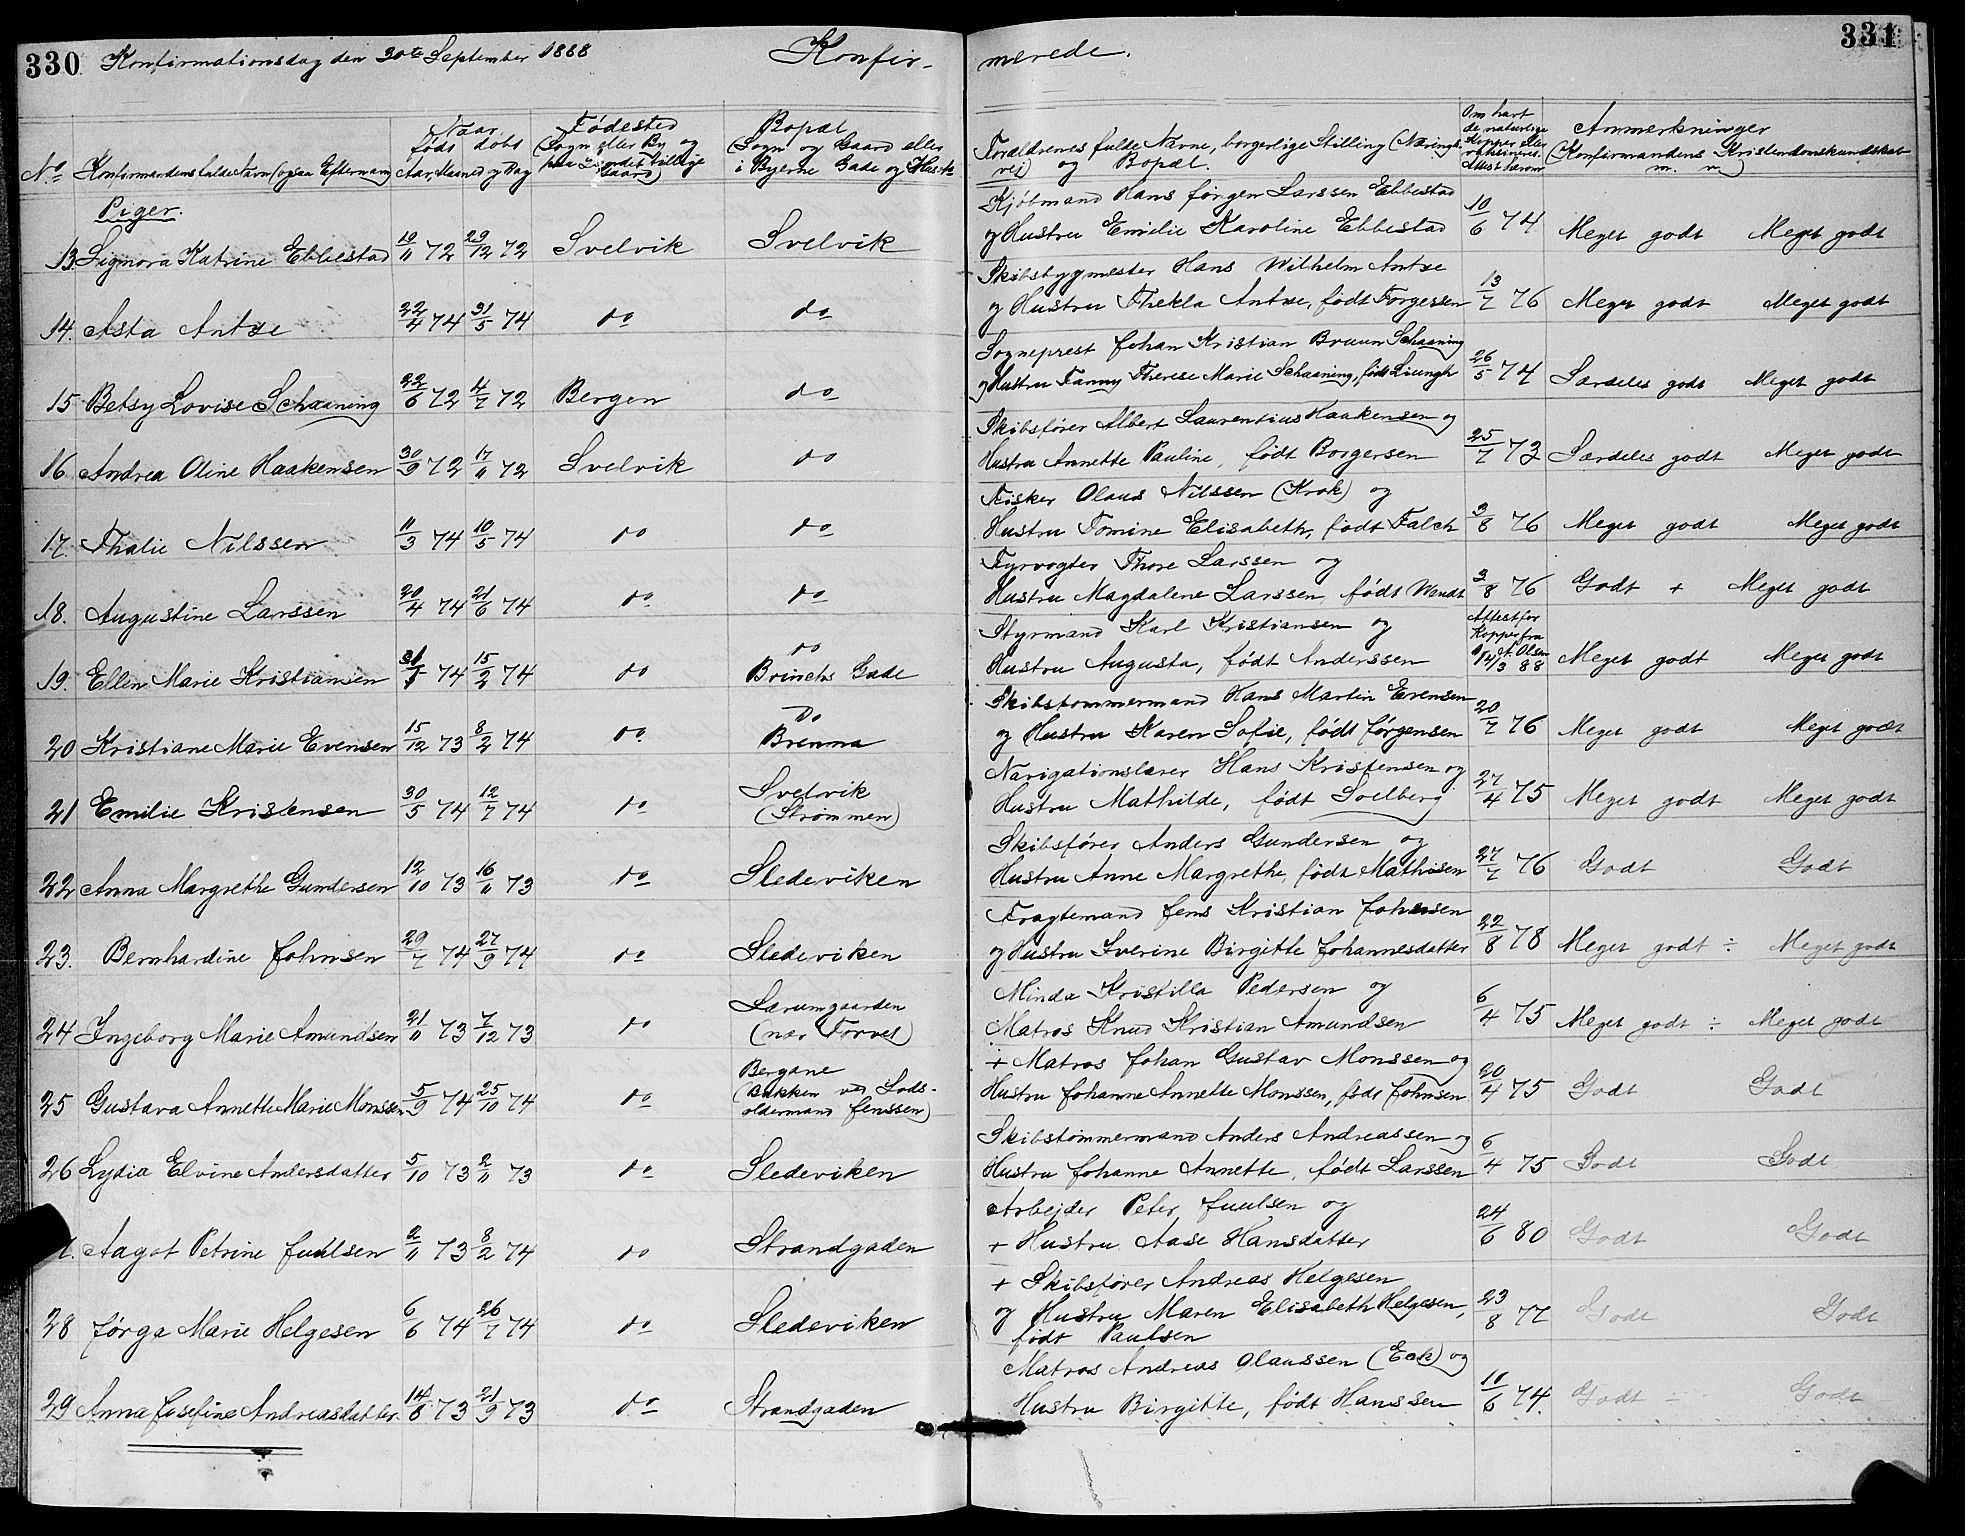 330 Konfirmationsdag den 30te September 1888 Konfir-
merede. 331
No Konfirmandens fulde Navn (ogsaa Efternavn) Naar født døbt Aar, Maaned og Dag Fødested (Sogn eller By og paa Landet tillige Gaard) Bopæl (Sogn og Gaard eller i Byerne Gade og Hus-No
Forældrenes fulde Navne, borgerlige Stilling (Næringsvei) og Bopæl. Om havt de naturlige Kopper eller vaksineret. Attest herom Anmerkninger (Konfirmandens Kristendomskundskab m. v.)
Piger.
13. Signora Katrine Ebbestad 10/11 72 29/12 72 Svelvik Svelvik
Kjøbmand Hans Jørgen Larssen Ebbestad
og Hustru Emilie Karoline Ebbestad 10/6 74 Meget godt Meget godt
14. Asta Antxe 22/4 74 31/5 74 do do
Skibsbygmester Hans Wilhelm Antxe
og Hustru Thekla Antxe, født Torgersen 13/7 76 Meget godt Meget godt
15 Betsy Lovise Schaaning 22/6 72 4/7 72 Bergen do
Sogneprest Johan Kristian Bruun Schaaning
og Hustru Fanny Therese Marie Schaaning, født Liungh 26/5 74 Særdeles godt Meget godt
16 Andrea Oline Haakensen 30/9 72 17/11 72 Svelvik do
Skibsfører Albert Laurentius Haakensen og
Hustru Annette Pauline, født Borgersen 25/7 73 Særdeles godt Meget godt
17. Thalie Nilssen 11/3 74 10/5 74 do do
Fisker Olaus Nilssen (Krok) og
Hustru Tomine Elisabeth, født Falch 3/8 76 Meget godt Meget godt
18. Augustine Larssen 20/4 74 21/6 74 do do
Fyrvogter Thore Larssen og
Hustru Magdalene Larssen, født Wendt 3/8 76 Godt + Meget godt
19. Ellen Marie Kristiansen 31/1 74 15/2 74 do do
Brinchs Gade
Styrmand Karl Kristiansen og
Hustru Augusta, født Anderssen Attest for Kopper fra A. Olsen 14/3 88 Meget godt Meget godt
20 Kristiane Marie Evensen 15/12 73 8/2 74 do do
Brenna
Skibstømmermand Hans Martin Evensen
og Hustru Karen Sofie, født Jørgensen 20/7 76 Meget godt Meget godt
21 Emilie Kristensen 30/5 74 12/7 74 do Svelvik
(Strømmen)
Navigationslærer Hans Kristensen og
Hustru Mathilde, født Soelberg 27/4 75 Meget godt Meget godt
22 Anna Margrethe Gundersen 12/10 73 16/11 73 do Sledeviken
Skibsfører Anders Gundersen og
Hustru Anne Margrethe, født Mathisen 27/7 76 Godt Godt
23. Bernhardine Johnsen 29/7 74 27/9 74 do Sledeviken
Fragtemand Jens Kristian Johnsen
og Hustru Sverine Birgitte Johannesdatter 22/8 78 Meget godt ÷ Meget godt
24 Ingeborg Marie Amundsen 21/11 73 7/12 73 do Lærumgaarden
(nær Torvet)
Minda Kristilla Pedersen og
Matros Knud Kristian Amundsen 6/4 75 Meget godt ÷ Meget godt
25 Gustava Annette Marie Monssen 5/9 74 25/10 74 do Bergane
(Bakken ved Lods-
oldermand Jenssen)
+ Matros Johan Gustav Monssen og
Hustru Johanne Annette Monssen, født Johnsen 20/4 75 Godt Godt
26 Lydia Elvine Andersdatter 5/10 73 2/11 73 do Sledeviken
Skibstømmermand Anders Andreassen og
Hustru Johanne Annette, født Larssen 6/4 75 Godt Godt
Aagot Petrine Juulsen 2/11 73 8/2 74 do Strandgaden
Arbejder Peter Juulsen og
+ Hustru Aase Hansdatter 24/6 80 Godt Godt
28 Jørga Marie Helgesen 6/6 74 26/7 74 do Sledeviken
+ Skibsfører Andreas Helgesen
og Hustru Maren Elisabeth Helgesen,
født Paulsen 23/8 77 Godt Godt
29 Anna Josefine Andreasdatter 14/8 73 21/9 73 do Strandgaden
Matros Andreas Olaussen (Eek) og
Hustru Birgitte, født Hanssen 10/6 74. Godt ÷ Godt